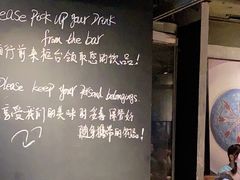 Please Pick up your Drink
from the bar
自行前来柜台领取您的饮品！
Please keep your Personal belongings.
享受我们的美味时妥善保管好
随身携带的物品！